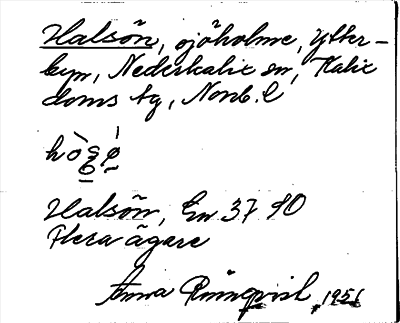 Halsön, sjöholme, Ytter-
byn, Nederkalix sn, Kalix
doms tg, Norrb. l
Halsön, En 37 SO
Flera ägare
Anna Rönnqvist, 1951